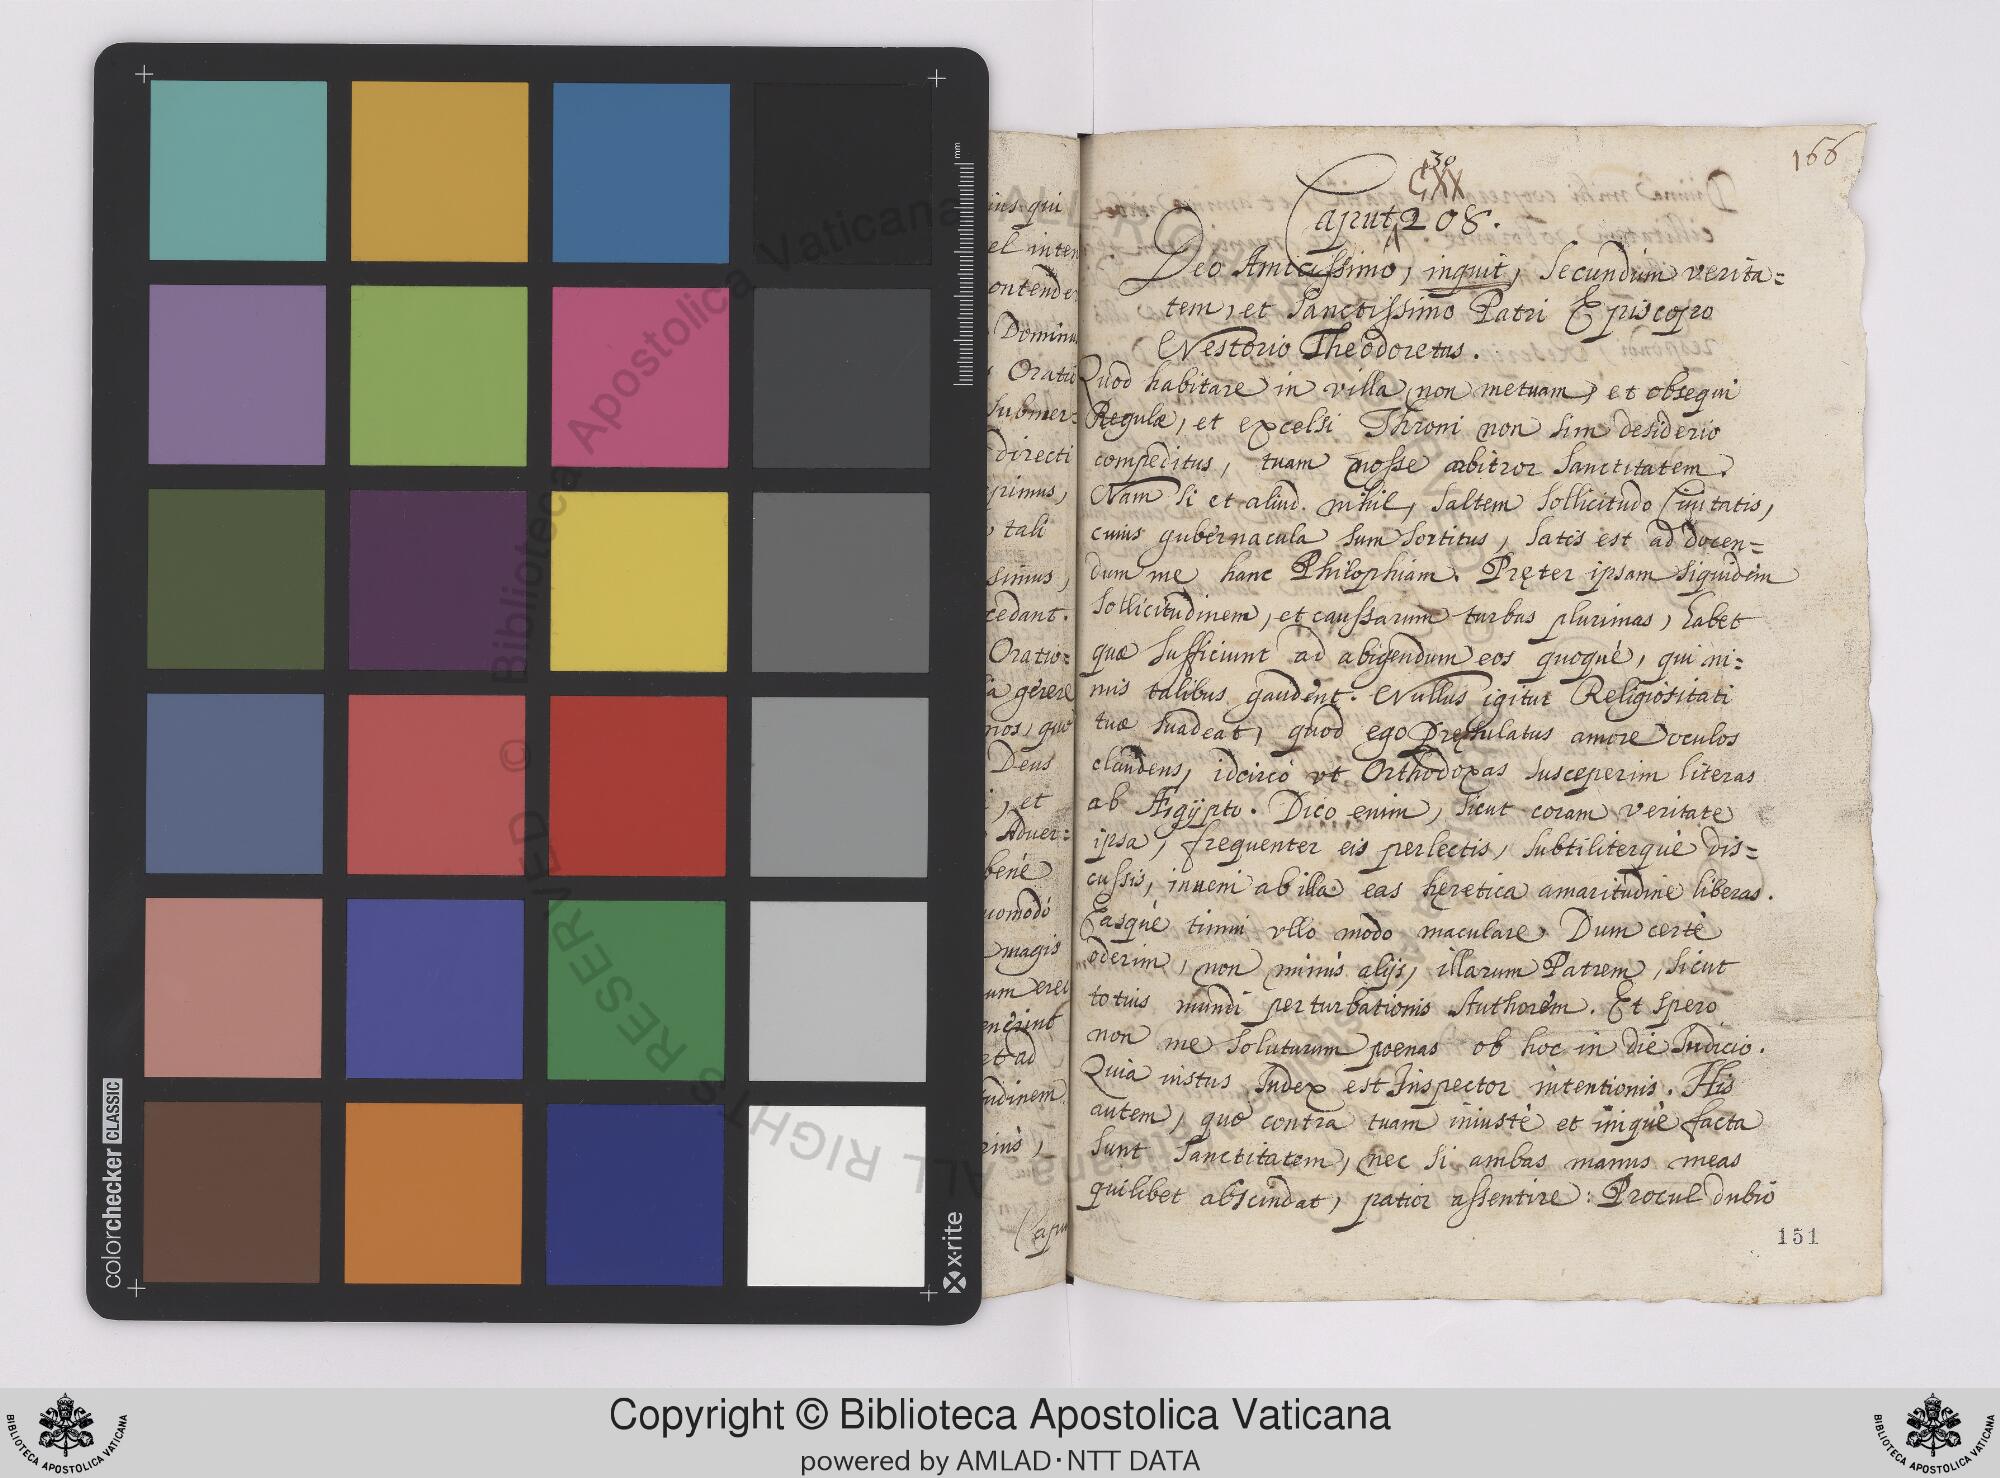 ius qui
el inten
ontende
Dominu
Oratio
submer=
directi
primus,
tali
simus,
cedant.
Oratio=
gerere
nos, quo
Deus
, et
Adver=
bené
uomodó
magis
um erei
enerint
et ad
udinem
Capu
166
30
CXX
Caput 208.
Deo Amicissimo, inquit, secundum verita=
tem, et Sanctissimo Patri Episcopo
Nestorio Theodoretus.
Quod habitare in villa non metuam, et obsequi
Regulæ, et excelsi Throni non sim desiderio
compeditus, tuam nosse arbitror Sanctitatem.
Nam si et aliud nihil, saltem sollicitudo Civitatis,
cuius gubernacula sum sortitus, satis est ad docen=
dum me hanc Philophiam. Pręter ipsam siquidem
sollicitudinem, et caussarum turbas plurimas, habet
quæ sufficiunt ad abigendum eos quoquè, qui ni=
mis talibus gaudent. Nullus igitur Religiositati
tuæ suadeat, quod ego Pręsulatus amore oculos
claudens, idcircò vt Orthodoxas susceperim literas
ab Ægÿpto. Dico enim, sicut coram veritate
ipsa, frequenter eis perlectis, subtiliterquè dis=
cussis, inueni ab illa eas hęretica amaritudine liberas.
Easquè timui vllo modo maculare, Dum certè
oderim, non minùs alijs, illarum Patrem, sicut
totius mundi perturbationis Authorem. Et spero
non me soluturum poenas ob hoc in die Iudicio.
Quia iustus Iudex est Inspector intentionis. His
autem, quæ contra tuam iniustè et iniquè facta
sunt Sanctitatem, nec si ambas manus meas
quilibet abscindat, patior assentire: Procul dubio
151
colorchecker CLASSIC
x·rite
mm
© Biblioteca Apostolica Vaticana ALL RIGHTS RESERVED
Copyright © Biblioteca Apostolica Vaticana
powered by AMLAD·NTT DATA
BIBLIOTECA APOSTOLICA VATICANA
BIBLIOTECA APOSTOLICA VATICANA